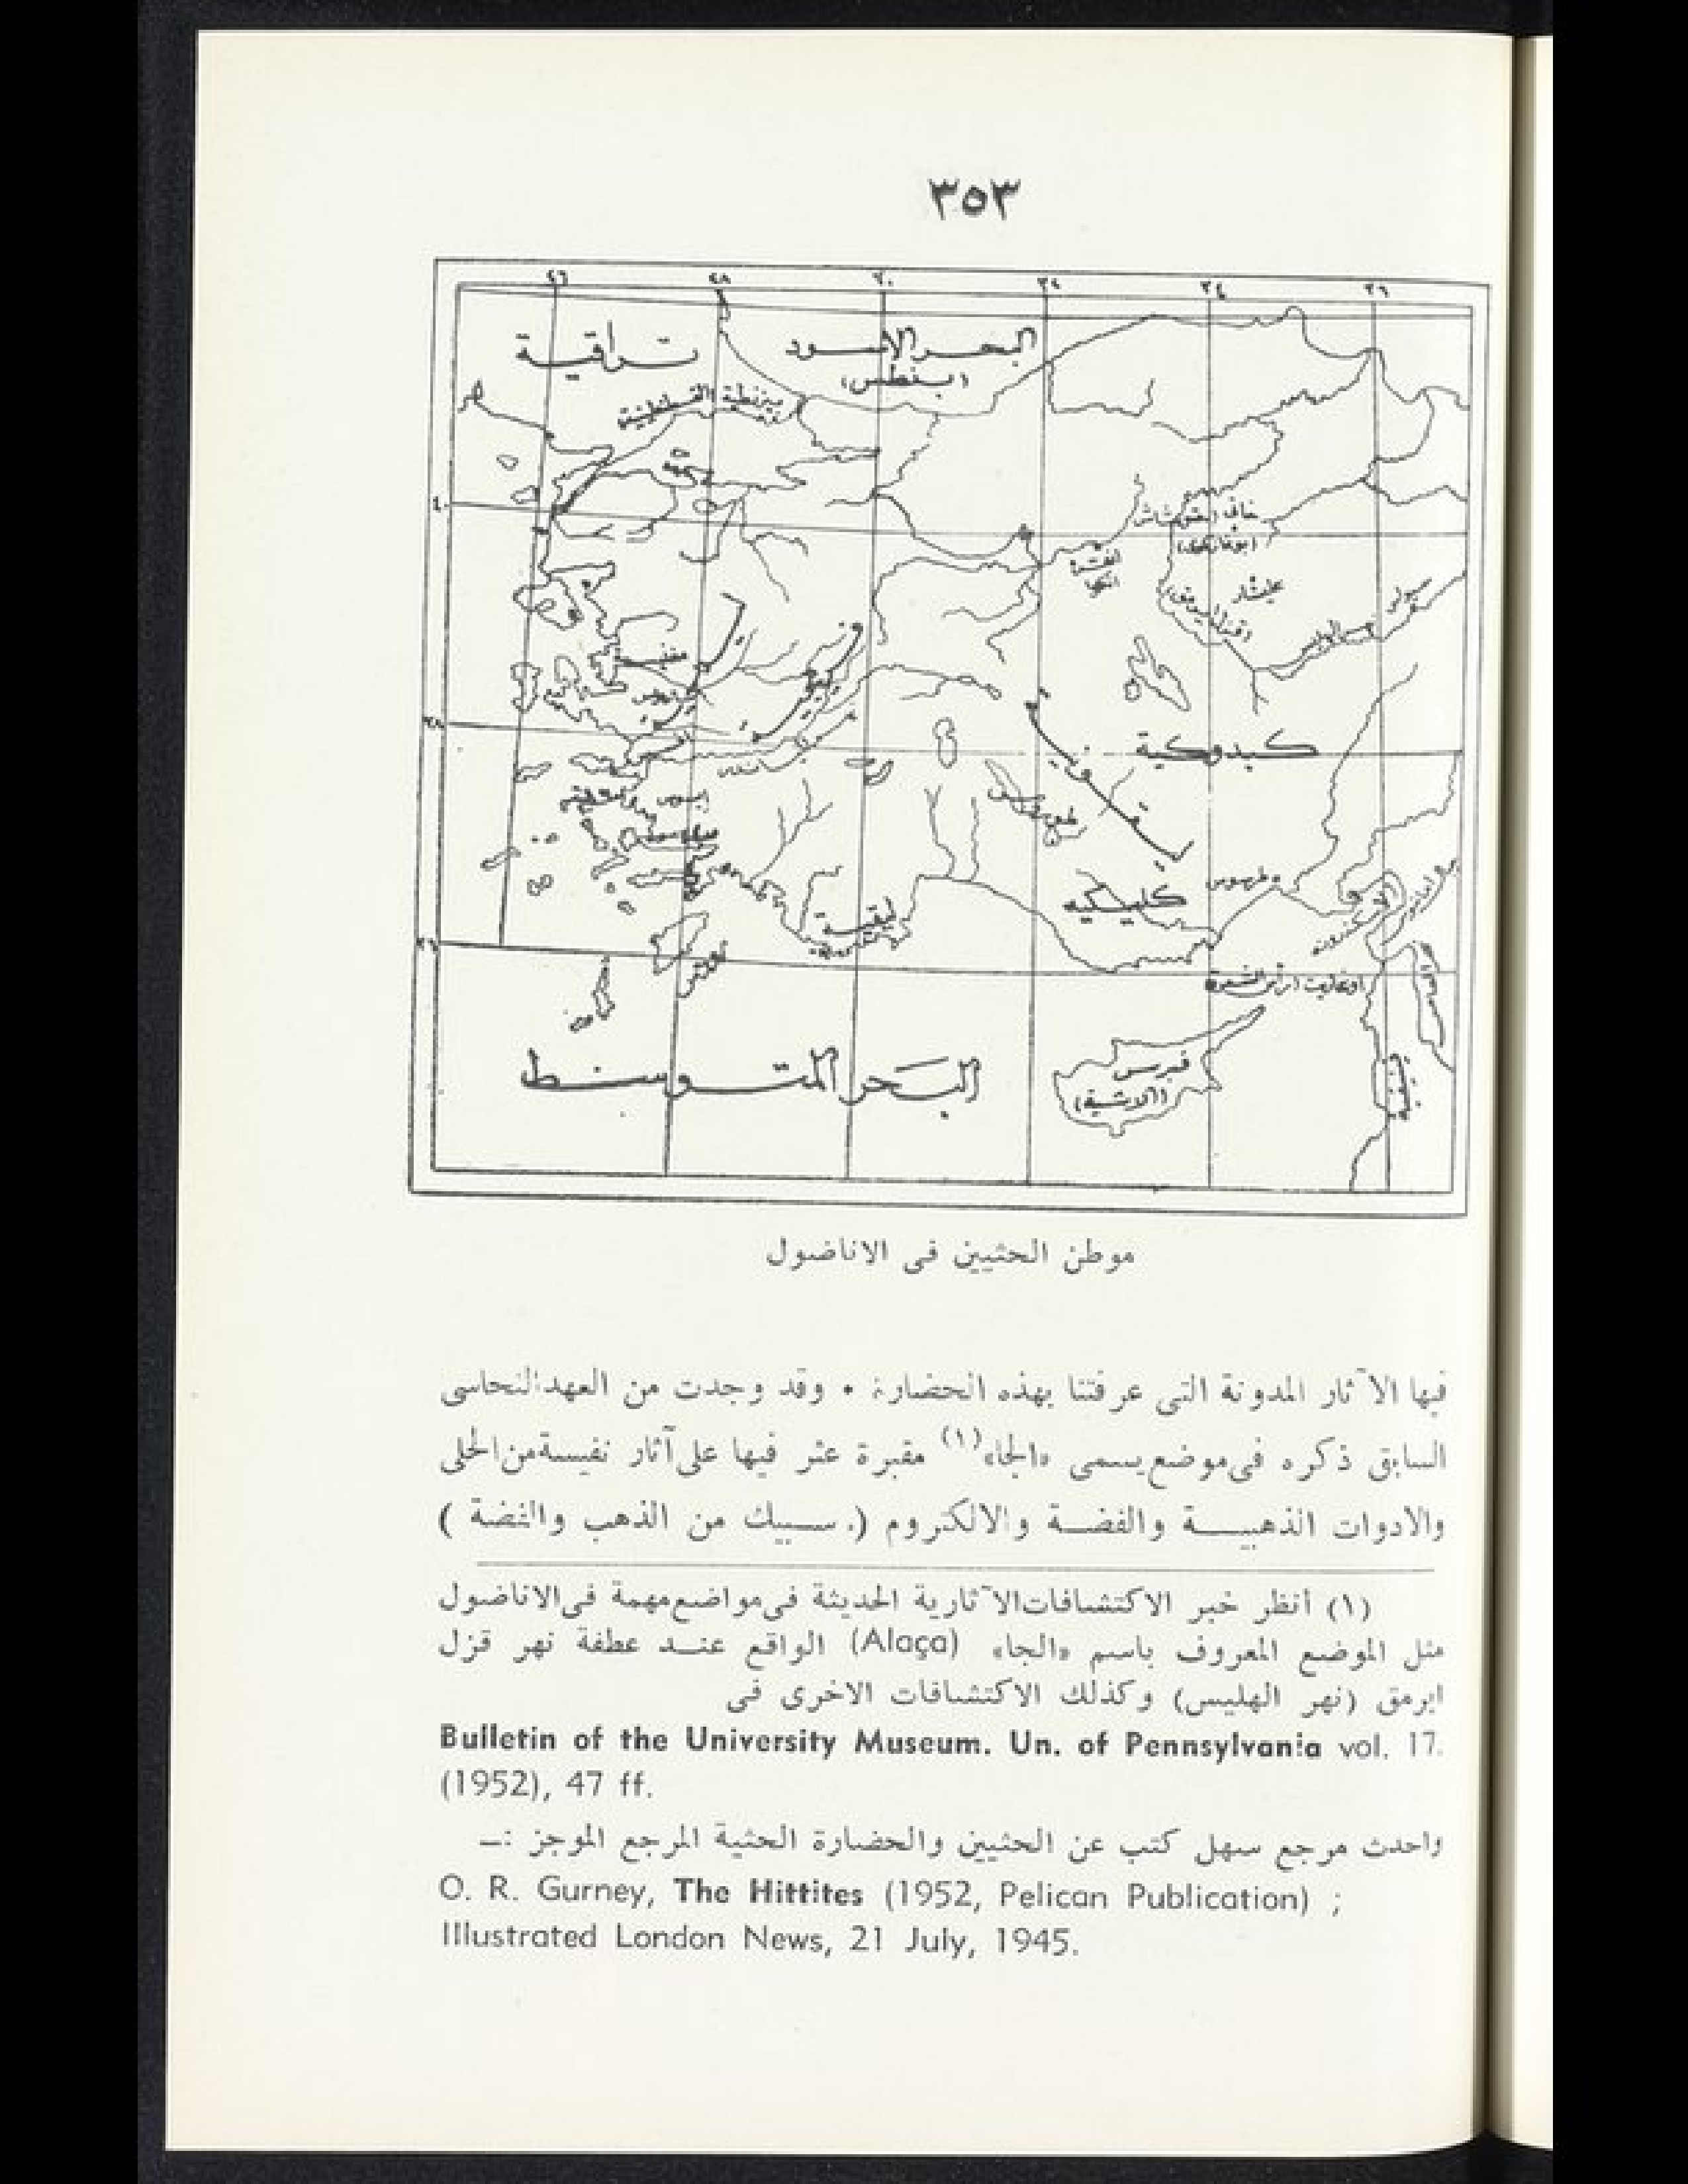 ٣٥٣
٢٦ ٢٨ ٣٠ ٣٢ ٣٤ ٣٦
تراقية
البحر الاسود
(بنطس)
بيزنطية
٤٠
خاتي
انقرة
عليشار
٣٨
كبدوكية
كليكيه
ليقية
٣٦
اوغاريت (رأس الشمرة)
قبرس
(الاشية)
البحر المتوسط
موطن الحثيين فى الاناضول
فيها الآثار المدونة التى عرفتنا بهذه الحضارة ٠ وقد وجدت من العهد النحاسى
السابق ذكره فى موضع يسمى «الجا»(١) مقبرة عثر فيها على آثار نفيسة من الحلى
والادوات الذهبيــــة والفضــة والالكتروم (. ســبيك من الذهب والفضة )
(١) أنظر خبر الاكتشافات الآثارية الحديثة فى مواضع مهمة فى الاناضول
مثل الموضع المعروف باسم «الجا» (Alaça) الواقع عنــد عطفة نهر قزل
ايرمق (نهر الهليس) وكذلك الاكتشافات الاخرى فى
Bulletin of the University Museum. Un. of Pennsylvania vol. 17.
(1952), 47 ff.
واحدث مرجع سهل كتب عن الحثيين والحضارة الحثية المرجع الموجز :ــ
O. R. Gurney, The Hittites (1952, Pelican Publication) ;
Illustrated London News, 21 July, 1945.